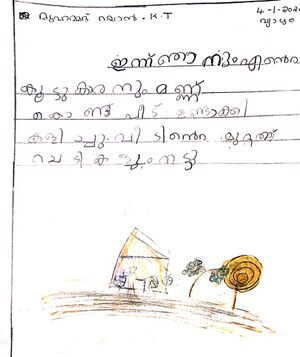 മുഹമ്മദ് റയാൻ. K.T
4-1-202
വ്യാഴം
ഇന്ന് ഞാനും എന്റെ
കൂട്ടുകാരനും മണ്ണ്
കൊണ്ട് വീട് ഉണ്ടാക്കി
കളിച്ചു. വീടിന്റെ മുറ്റത്ത്
ചെടികളും നട്ടു